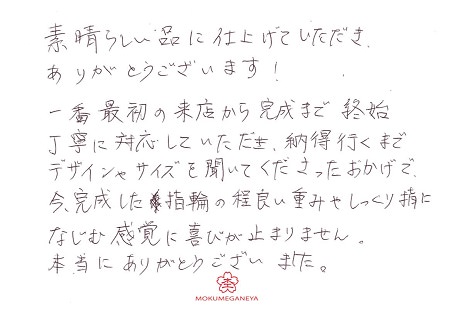 素晴らしい品に仕上げていただき、
ありがとうございます！
一番最初の来店から完成まで終始
丁寧に対応していただき、納得行くまで
デザインやサイズを聞いてくださったおかげで、
今、完成した指輪の程良い重みやしっくり指に
なじむ感覚に喜びが止まりません。
本当にありがとうございました。
MOKUMEGANEYA